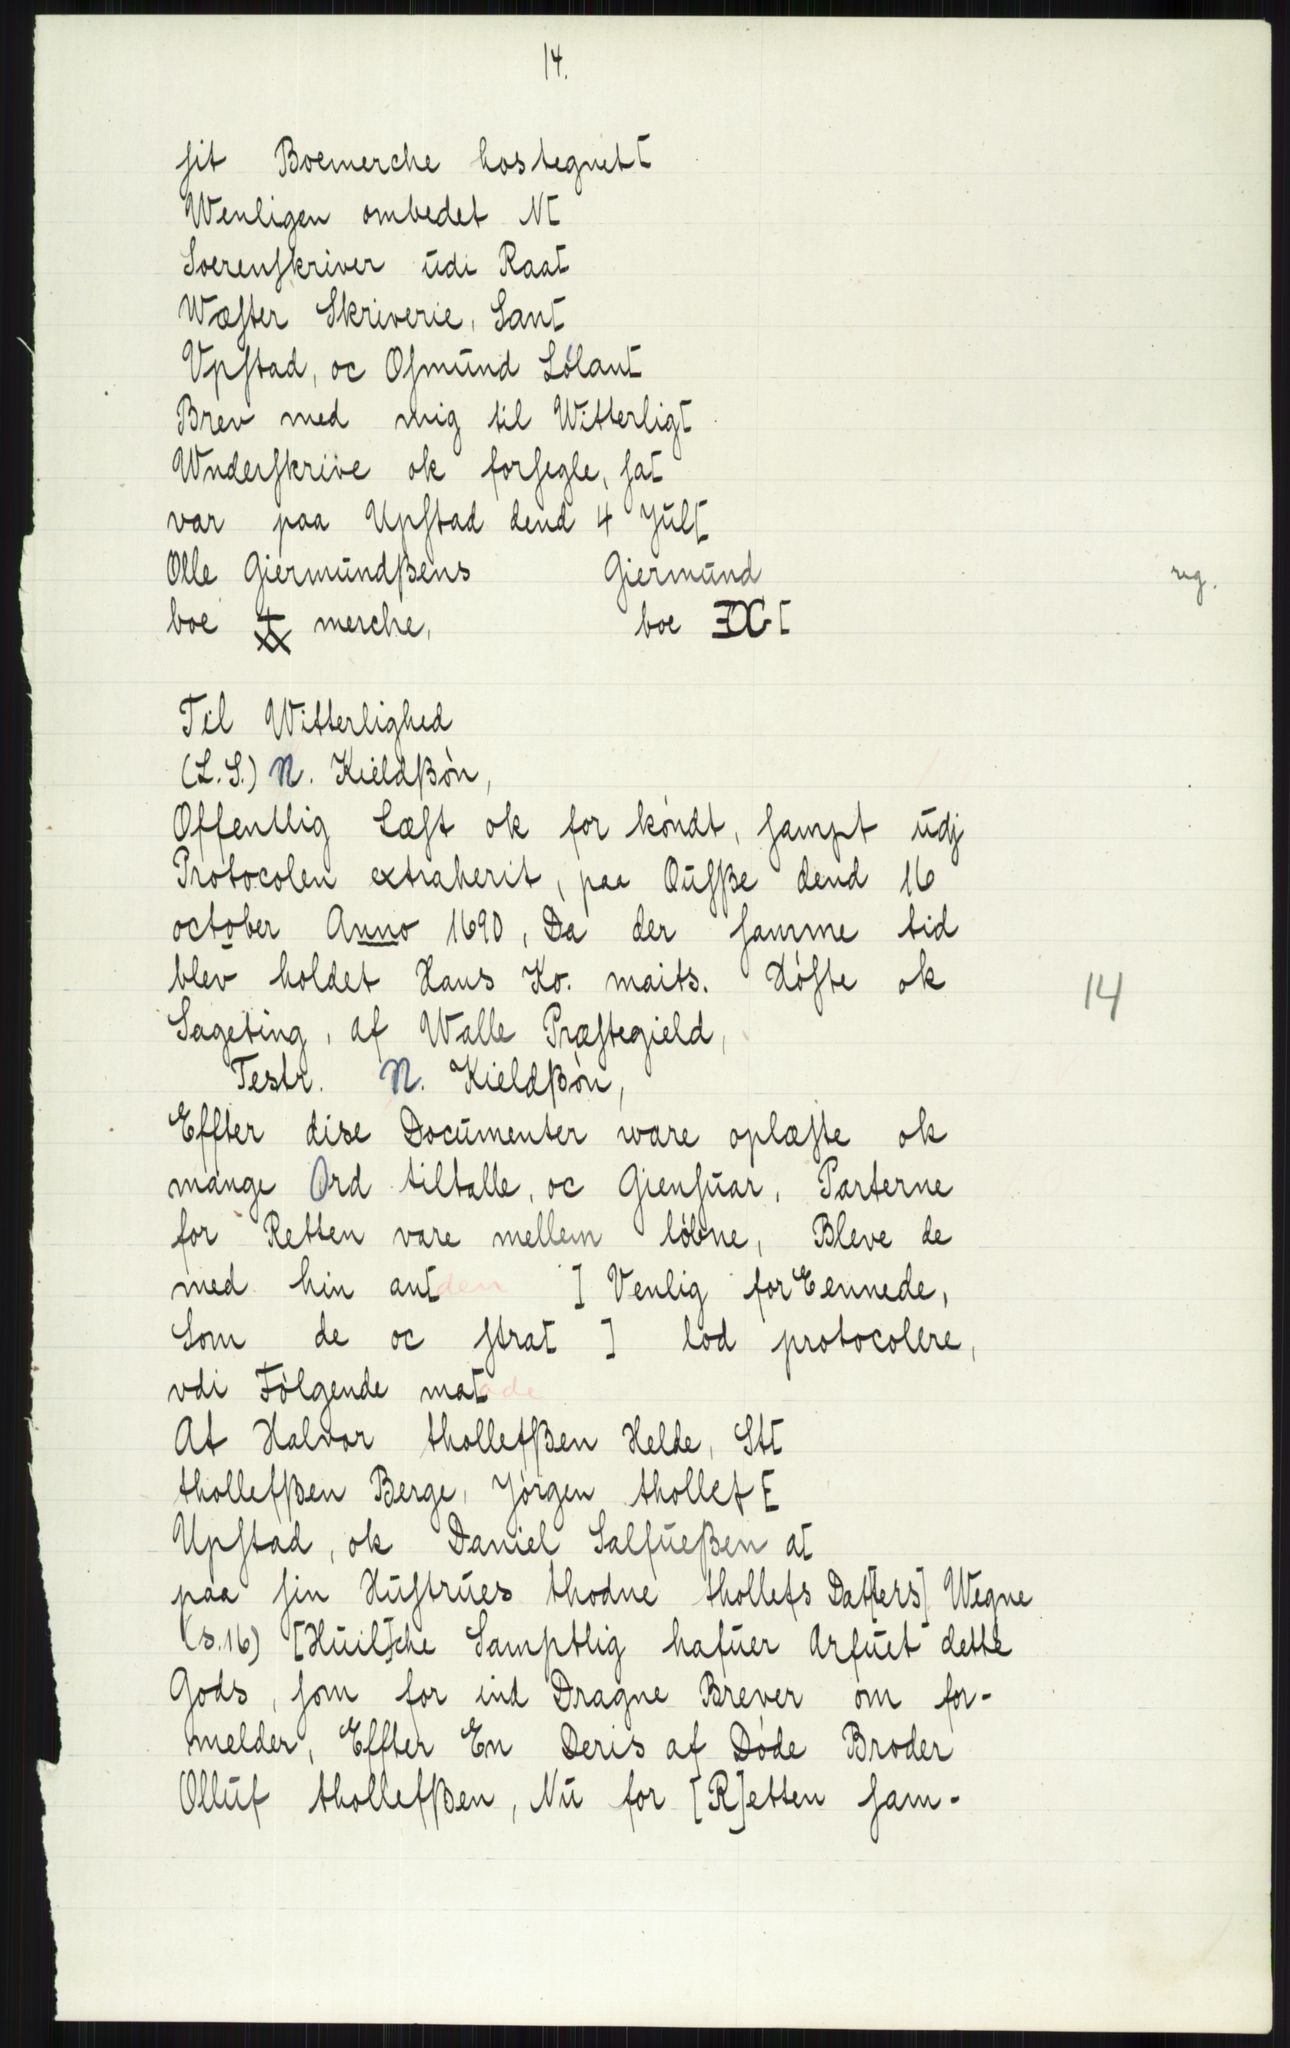 14.
sit Boemerche hostegnet[
Wenligen ombedet N[
Sorenskriver udi Raa[
Wæster Skriverie, San[
Upstad, oc Osmund Lølan[
Brev med mig til Witterlig[
Wnderskrive ok forsegle, sa[
var paa Upstad dend 4 Jul[
Olle Giermundßens Giermund
reg.
boe merche, boe [
Til Witterlighed
(L. S.) N. Kieldßøn,
Offentlig Læst ok for kondt, sampt udj
Protocolen extraherit, paa Ousße dend 16
october Anno 1690, Da der samme tid
blev holdet Hans Ko. maits. Høste ok
14
Sageting, af Walle Præstegield,
Testr. N. Kieldßøn,
Effter dise Documenter ware oplæste ok
mange Ord tiltalle, oc Giensuar, Parterne
for Retten vare mellem løbne, Bleve de
med hin an[den ] Venlig forEennede,
Som de oc stra[ ] lod protocolere,
vdi Følgende ma[ade
At Halvor thollefßen Helde, St[
thollefßen Berge, Jørgen thollef[
Upstad, ok Daniel Salfueßen a[
paa sin Hustrues thodne thollefs Dat[ers] Wegne
(s. 16) [Huil]che Samptlig hafuer Arfuet dette
Gods, som for ind Dragne Brever om for-
melder, Effter En Deris af Døde Broder
Olluf thollefßen, Nu for [R]etten sam-